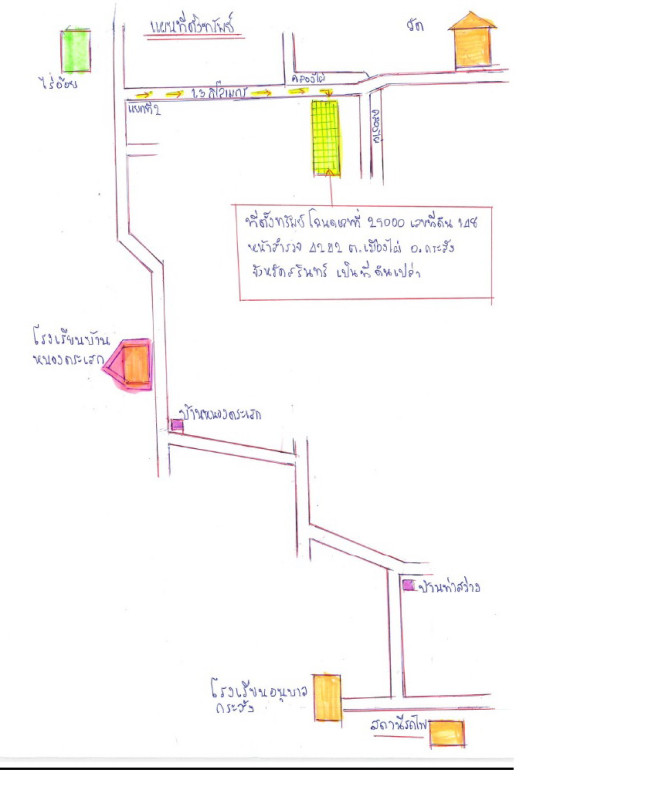 แผนที่ตั้งทรัพย์
วัด
ไร่อ้อย
คลองไผ่
1.3 กิโลเมตร
แยกที่ 2
คลองไผ่
ที่ตั้งทรัพย์ โฉนดเลขที่ 29000 เลขที่ดิน 148
หน้าสำรวจ 4282 ต.เมืองไผ่ อ.กระสัง
จังหวัดสุรินทร์ เป็นที่ดินเปล่า
โรงเรียนบ้าน
หนองตระเสก
บ้านหนองตระเสก
บ้านท่าสว่าง
โรงเรียนอนุบาล
กระสัง
สถานีรถไฟ